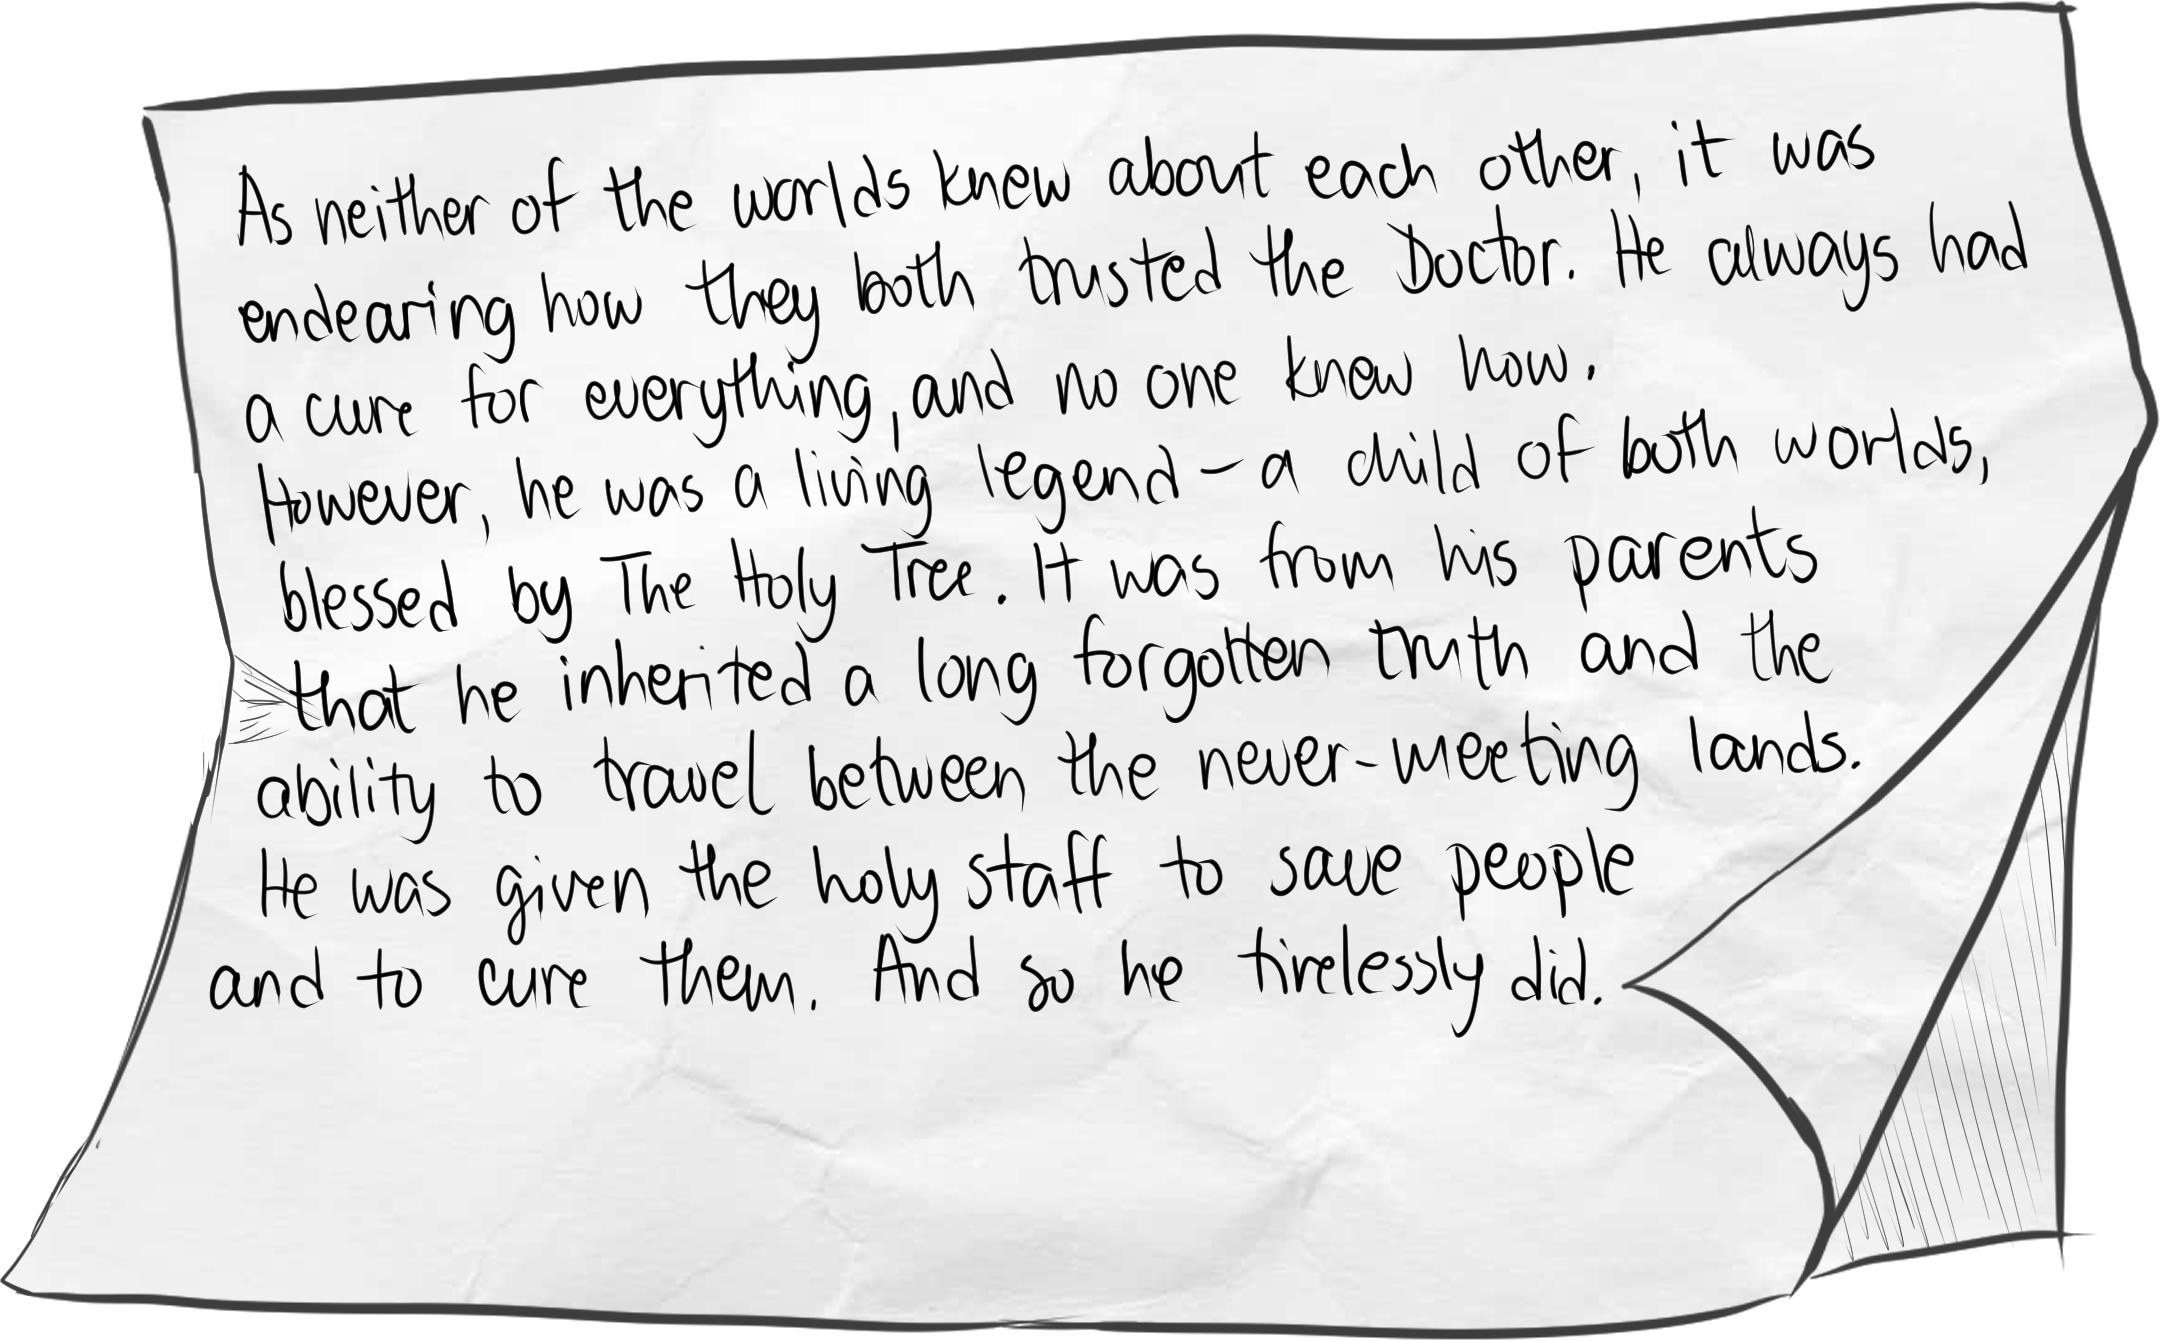 As neither of the worlds knew about each other, it was
endearing how they both trusted the Doctor. He always had
a cure for everything, and no one knew how.
However, he was a living legend - a child of both worlds,
blessed by The Holy Tree. It was from his parents
that he inherited a long forgotten truth and the
ability to travel between the never-meeting lands.
He was given the holy staff to save people
and to cure them. And so he tirelessly did.